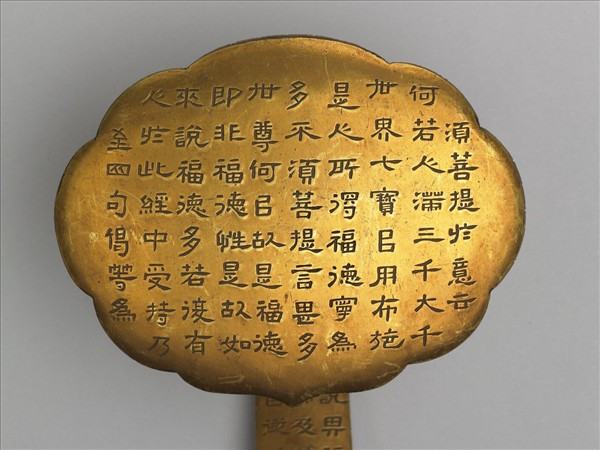 須菩提於意云
何若人滿三千大千
世界七寶㠯用布施
是人所得福德寧為
多不須菩提言甚多
世尊何㠯故是福德
即非福德性是故如
來說福德多若復有
人於此經中受持乃
至四句偈等為